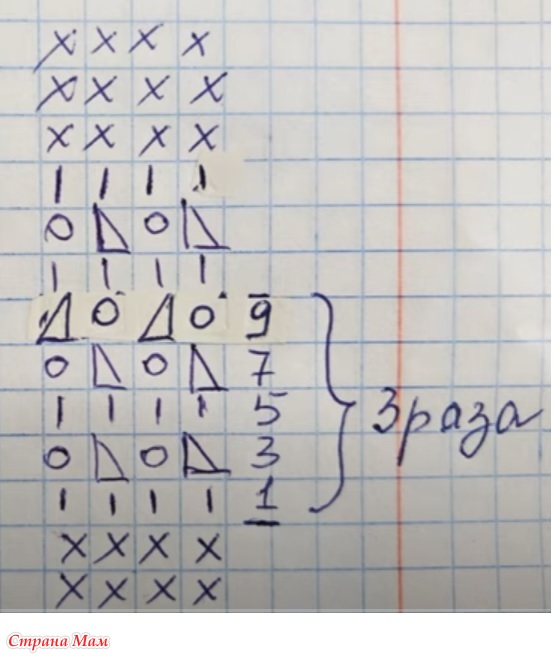 х х х х
х х х х
х х х х
| | | |
О ◺ О ◺
| | | |
◿ О ◿ О 9
О ◺ О ◺ 7
| | | | 5
О ◺ О ◺ 3
| | | | 1
х х х х
х х х х
3 раза
Страна Мам